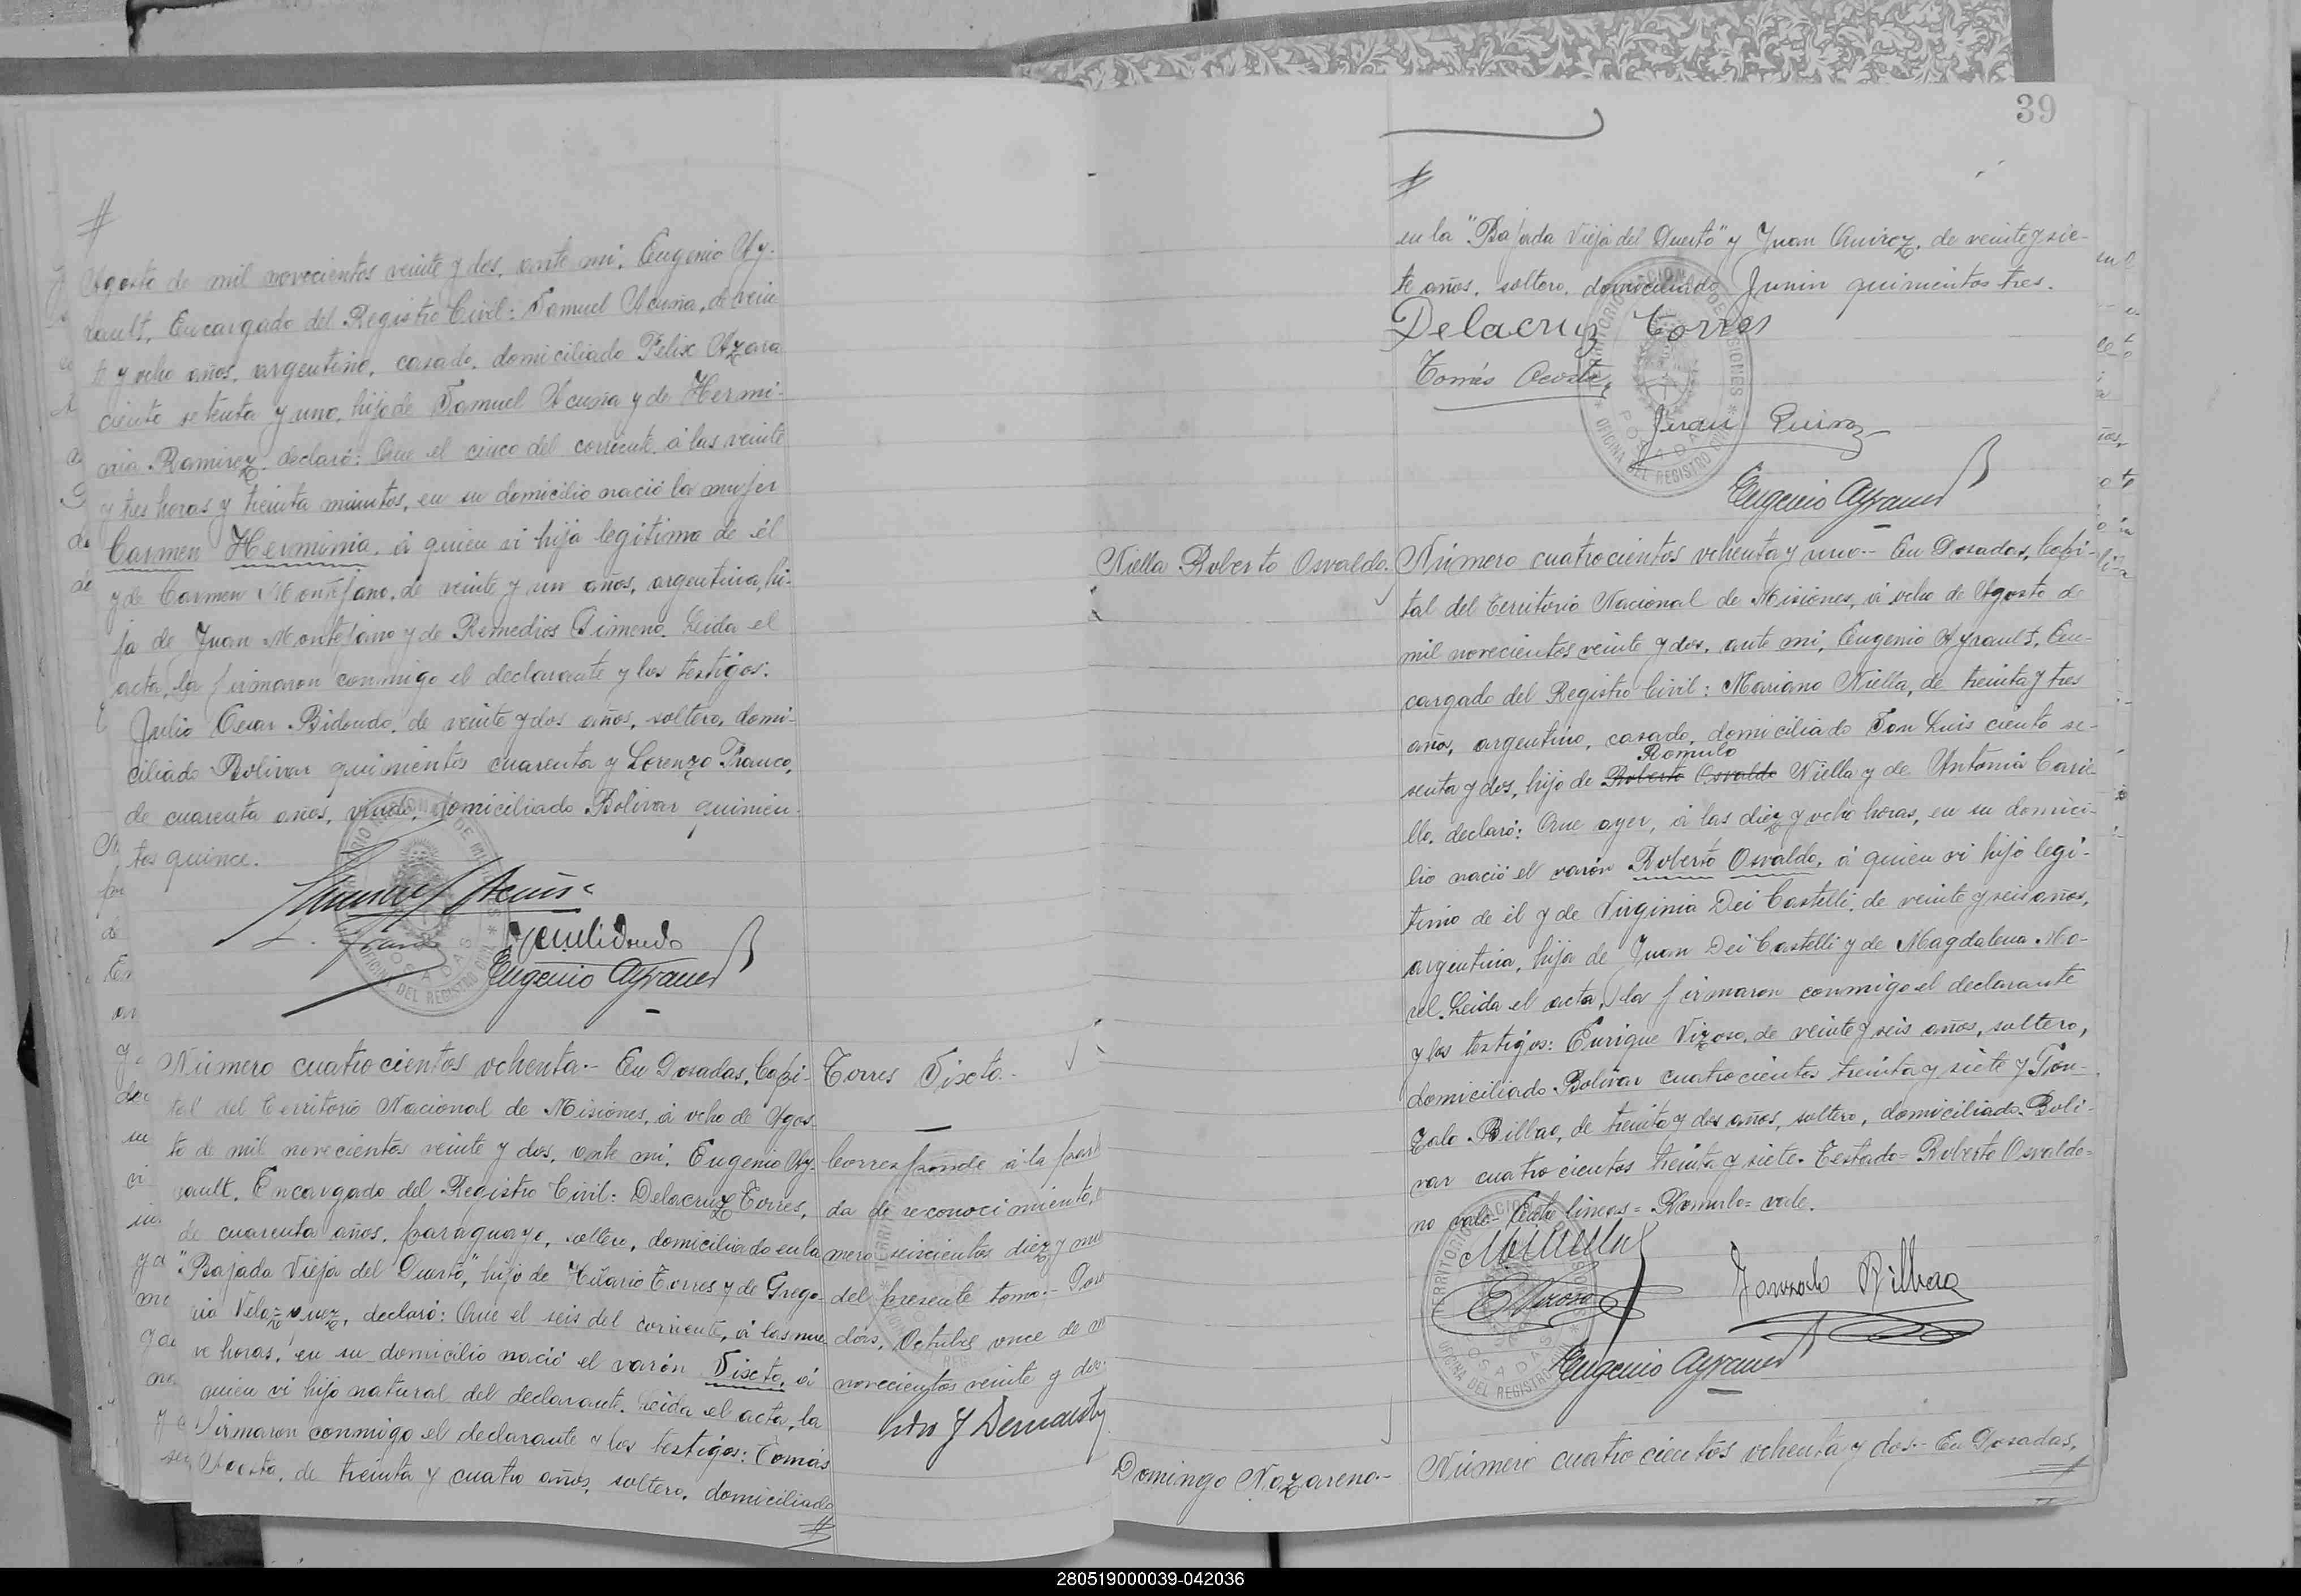 #
Agosto de mil novecientos veinte y dos, ante mi, Eugenio Ay-
rault, Encargado del Registro Civil: Samuel Acuña, de vein
te y ocho años, argentino, casado, domiciliado Felix Azara
ciento setenta y uno, hijo de Samuel Acuña y de Hermi-
nia Ramirez, declaró: Que el cinco del corriente, á las veinte
y tres horas y treinta minutos, en su domicilio nació la mujer
Carmen Herminia, á quien vi hija legitima de él
y de Carmen Montejano, de veinte y un años, argentina, hi-
ja de Juan Montejano y de Remedios Gimeno. Leida el
acta, la firmaron conmigo el declarante y los testigos:
Julio Cesar Bidondo, de veinte y dos años, soltero, domi-
ciliado Bolivar quinientos cuarenta y Lorenzo Franco,
de cuarenta años, viudo, domiciliado Bolivar quinien-
tos quince.
Samuel Acuña
L. Franco
Eugenio Ayrault
Número cuatrocientos ochenta.- En Posadas, Capi-
tal del Territorio Nacional de Misiones, á ocho de Agos-
to de mil novecientos veinte y dos, ante mi, Eugenio Ay-
rault, Encargado del Registro Civil: Delacruz Torres,
de cuarenta años, paraguayo, soltero, domiciliado en la
"Bajada Vieja del Puerto", hijo de Hilario Torres y de Grego-
ria Velazquez, declaró: Que el seis del corriente, á las nue
ve horas, en su domicilio nació el varón Sixto, á
quien vi hijo natural del declarante. Leida el acta, la
firmaron conmigo el declarante y los testigos: Tomás
Acosta, de treinta y cuatro años, soltero, domiciliado
#
Torres Sixto.-
Corresponde á la parti
da de reconocimiento,
mero seiscientos diez y nu
del presente tomo.- Posa
das, Octubre once de
novecientos veinte y dos
39
#
en la "Bajada Vieja del Puerto" y Juan Quiroz, de veinte y sie-
te años, soltero, domiciliado Junin quinientos tres.
Delacruz Torres
Tomás Acosta
Juan Quiroz
Eugenio Ayrault
Niella Roberto Osvaldo.
Número cuatrocientos ochenta y uno.- En Posadas, Capi-
tal del Territorio Nacional de Misiones, á ocho de Agosto de
mil novecientos veinte y dos, ante mi, Eugenio Ayrault, En-
cargado del Registro Civil: Mariano Niella, de treinta y tres
años, argentino, casado, domiciliado San Luis ciento se-
Romulo
senta y dos, hijo de Roberto Osvaldo Niella y de Antonia Carie
llo, declaró: Que ayer, á las diez y ocho horas, en su domici-
lio nació el varón Roberto Osvaldo, á quien vi hijo legi-
timo de él y de Virginia Dei Castelli, de veinte y seis años,
argentina, hija de Juan Dei Castelli y de Magdalena Mo-
rel. Leida el acta, la firmaron conmigo el declarante
y los testigos: Enrique Vizoso, de veinte y seis años, soltero,
domiciliado Bolivar cuatrocientos treinta y siete y Gon-
zalo Billao, de treinta y dos años, soltero, domiciliado Boli-
var cuatrocientos treinta y siete. Testado= Roberto Osvaldo=
no vale. Entre lineas= Romulo= vale.
M. Niella
E Vizoso
Gonzalo Billao
Eugenio Ayrault
Domingo Nazareno.-
Número cuatrocientos ochenta y dos.- En Posadas,
TERRITORIO NACIONAL DE MISIONES
POSADAS
OFICINA DEL REGISTRO CIVIL
280519000039-042036